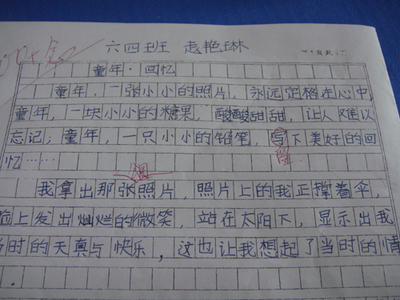 六四班 赵艳琳
童年·回忆
童年,一张小小的照片,永远定格在心中,
童年,一块小小的糖果,酸酸甜甜,让人难以
忘记;童年,一只小小的铅笔,写下美好的回
忆……
我拿出那张照片,照片上的我正撑着伞,
脸上发出灿烂的微笑,站在太阳下,显示出我
当时的天真与快乐,这也让我想起了当时的情